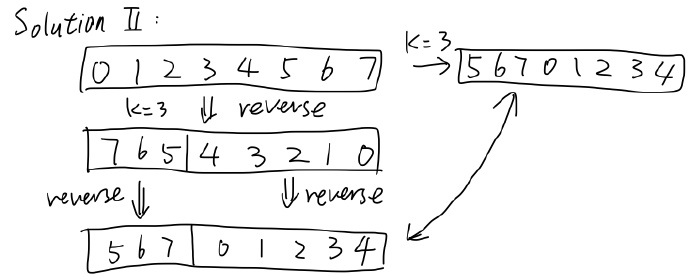 Solution II:
0 1 2 3 4 5 6 7
k=3
5 6 7 0 1 2 3 4
k=3 reverse
7 6 5 4 3 2 1 0
reverse reverse
5 6 7 0 1 2 3 4